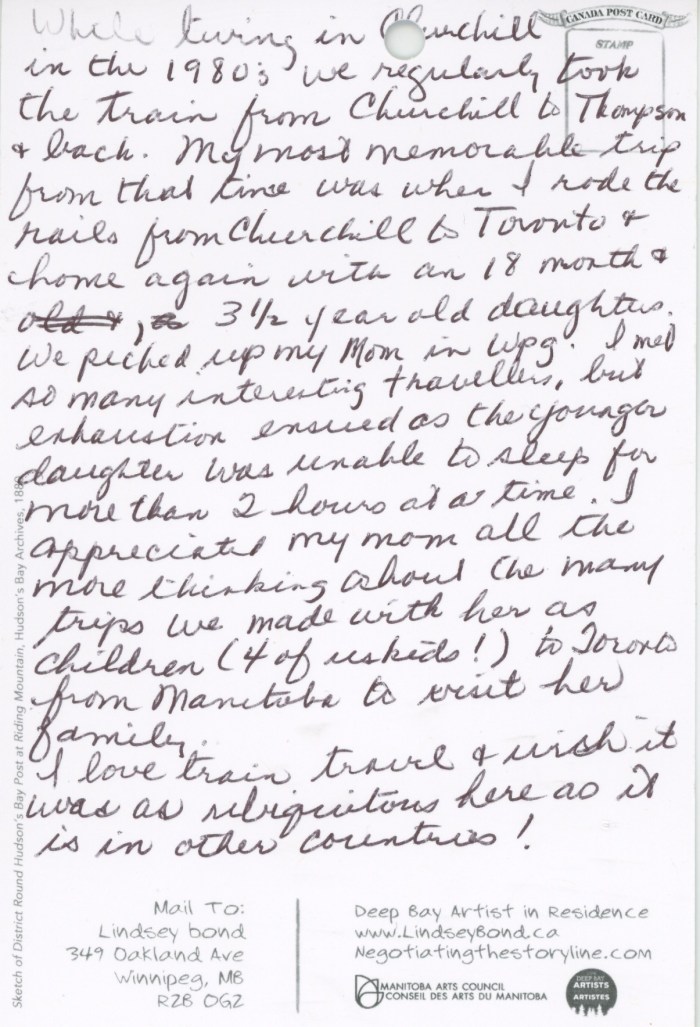 While living in Churchill
in the 1980s we regularly took
the train from Churchill to Thompson
& back. My most memorable trip
from that time was when I rode the
rails from Churchill to Toronto &
home again with an 18 month &
old &, a 3 1/2 year old daughters.
We picked up my Mom in Wpg. I met
so many interesting travellers, but
exhaustion ensued as the younger
daughter was unable to sleep for
more than 2 hours at a time. I
appreciated my mom all the
more thinking about the many
trips we made with her as
children (4 of us kids!) to Toronto
from Manitoba to visit her
family.
I love train travel & wish it
was as ubiquitous here as it
is in other countries!
CANADA POST CARD
STAMP
Sketch of District Round Hudson's Bay Post at Riding Mountain, Hudson's Bay Archives, 188
Mail To:
Lindsey bond
349 Oakland Ave
Winnipeg, MB
R2B 0G2
Deep Bay Artist in Residence
www.LindseyBond.ca
Negotiatingthestoryline.com
MANITOBA ARTS COUNCIL
CONSEIL DES ARTS DU MANITOBA
DEEP BAY
ARTISTS
ARTISTES